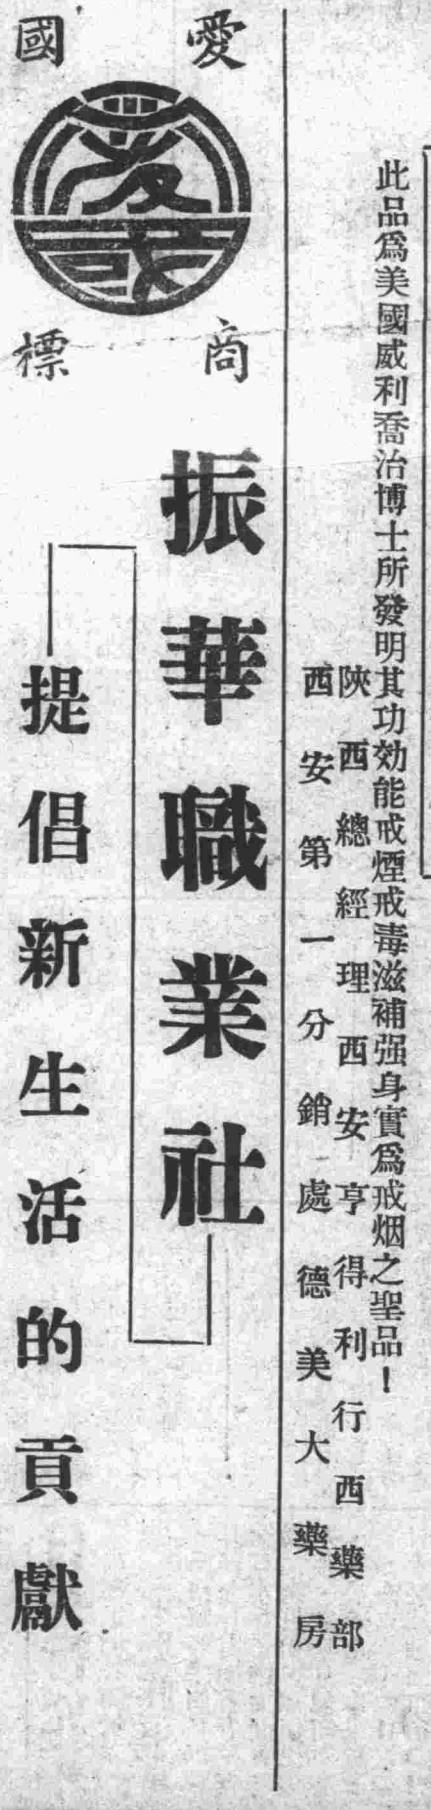 此品爲美國威利喬治博士所發明其功効能戒煙戒毒滋補强身實爲戒烟之聖品！
陝西總經理西安亨得利行西藥部
西安第一分銷處德美大藥房
愛國
商標
振華職業社
提倡新生活的貢獻